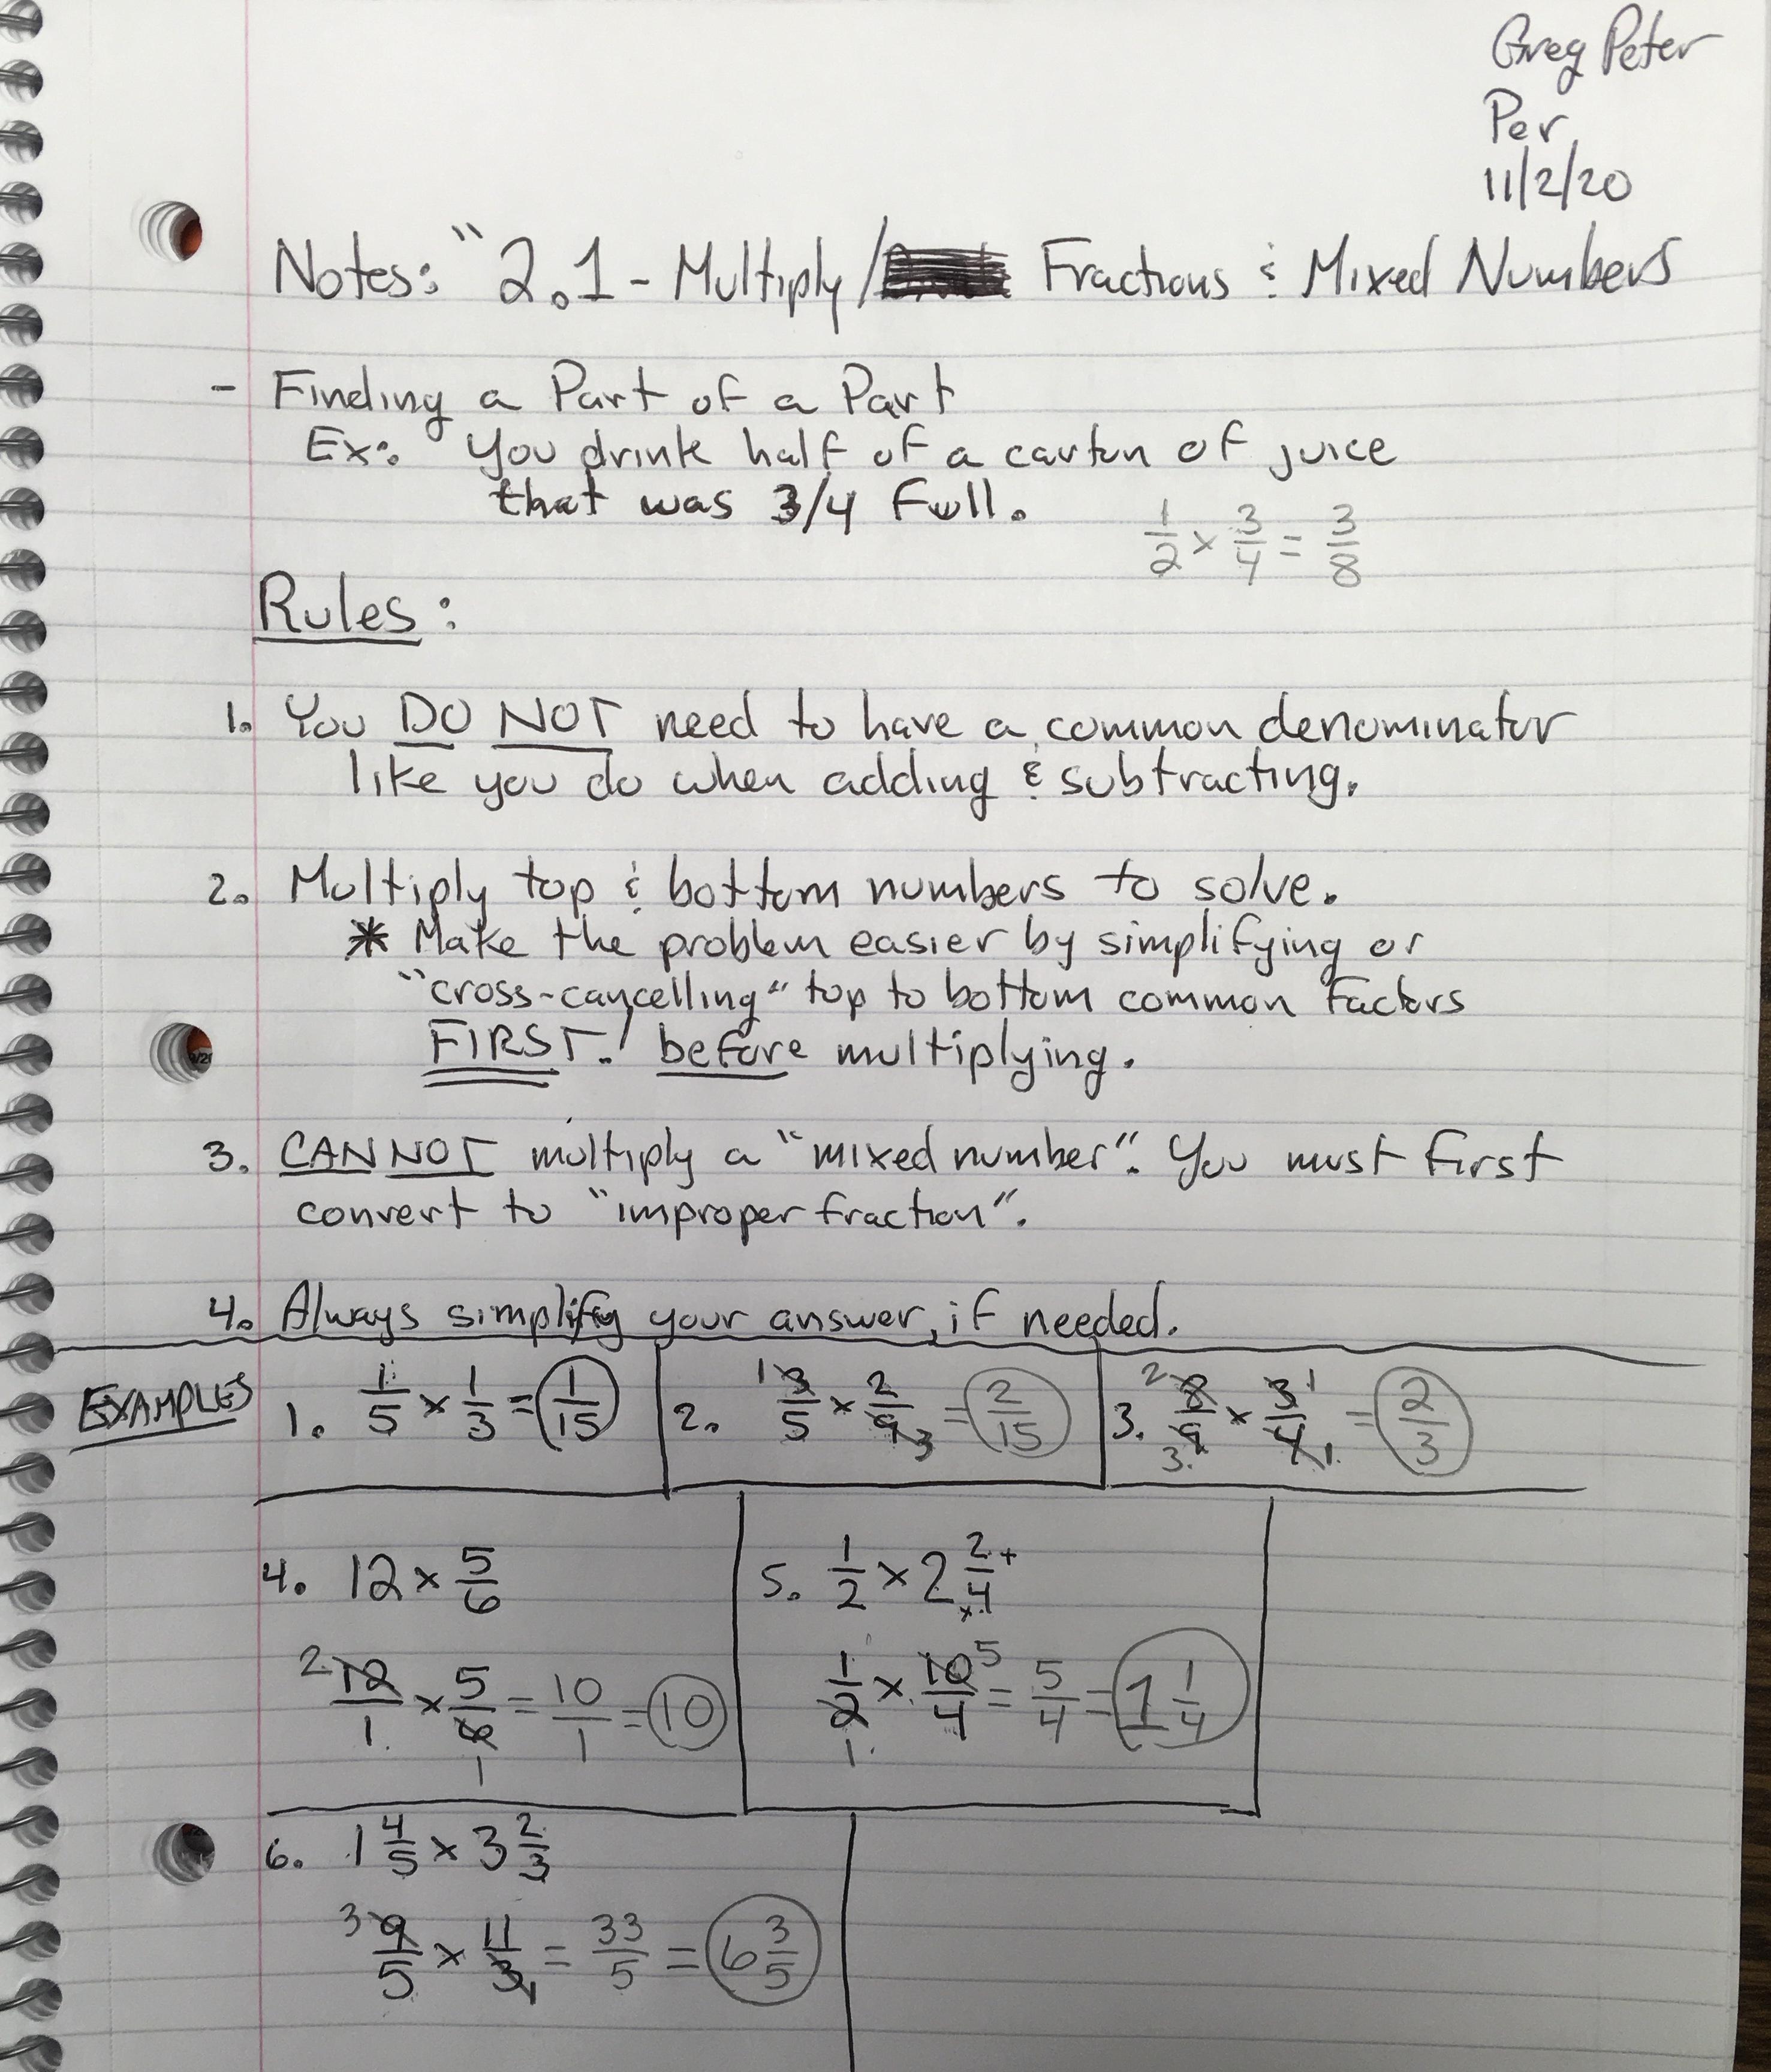 Greg Peter
Per.
11/2/20
Notes: "2.1 - Multiply/ Fractions & Mixed Numbers
- Finding a Part of a Part
Ex: You drink half of a carton of juice
that was 3/4 full.
1/2 × 3/4 = 3/8
Rules:
1. You DO NOT need to have a common denominator
like you do when adding & subtracting.
2. Multiply top & bottom numbers to solve.
* Make the problem easier by simplifying or
"cross-cancelling" top to bottom common factors
FIRST! before multiplying.
3. CANNOT multiply a "mixed number". You must first
convert to "improper fraction".
4. Always simplify your answer, if needed.
EXAMPLES
1. 1/5 × 1/3 = 1/15
2. 1 3/5 × 2/9 3 = 2/15
3. 2 8/9 3 × 3/4 1 1 = 2/3
4. 12 × 5/6
2 12/1 × 5/6 1 = 10/1 = 10
5. 1/2 × 2 2/4 + ×
1/2 1 × 10/4 5 = 5/4 = 1 1/4
6. 1 4/5 × 3 2/3
3 9/5 × 11/3 1 = 33/5 = 6 3/5